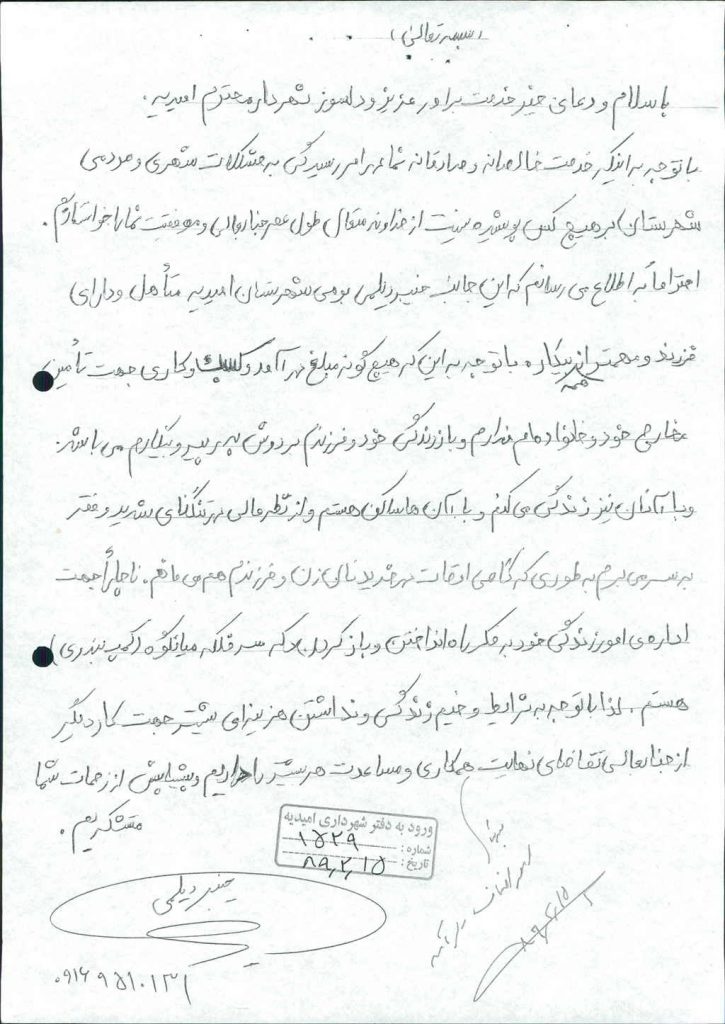 (بسمه تعالی)
با سلام و دعای خیر خدمت برادر عزیز و دلسوز شهردار محترم امیدیه.
با توجه به اینکه خدمت خالصانه و صادقانه شما در امر رسیدگی به مشکلات شهری و مردمی
شهرستان بر هیچ کس پوشیده نیست از خداوند متعال طول عمر جنابعالی و موفقیت شما را خواستارم.
احتراماً به اطلاع می رسانم که این جانب دیلمی بومی شهرستان امیدیه متأهل و دارای
فرزند و مهمتر از همه بیکار، با توجه به این که هیچ گونه مبلغ درآمد و کسب و کاری جهت تأمین
مخارج خود و خانواده ام ندارم و بار زندگی خود و فرزندم بر دوش پدر پیر و بیکارم می باشد.
و با آنان نیز زندگی می کنم و با آن ها ساکن هستم و از نظر مالی در تنگنای شدید و فقر
به سر می برم به طوری که گاهی اوقات در خرید نان زن و فرزندم هم می مانم. ناچاراً جهت
اداره ی امور زندگی خود به فکر راه انداختن و باز کردن دکه سر فلکه میانکوه (کمپ بندری)
هستم. لذا با توجه به شرایط وخیم زندگی و نداشتن هزینه ای جهت کار دیگر
از جنابعالی تقاضای نهایت همکاری و مساعدت هر بیشتر را داریم و پیشاپیش از زحمات شما
متشکریم.
ورود به دفتر شهرداری امیدیه
شماره: ۱۵۲۹
تاریخ: ۸۹،۲،۱۵
دیلمی
۰۹۱۶۹۵۱۰۱۳۱